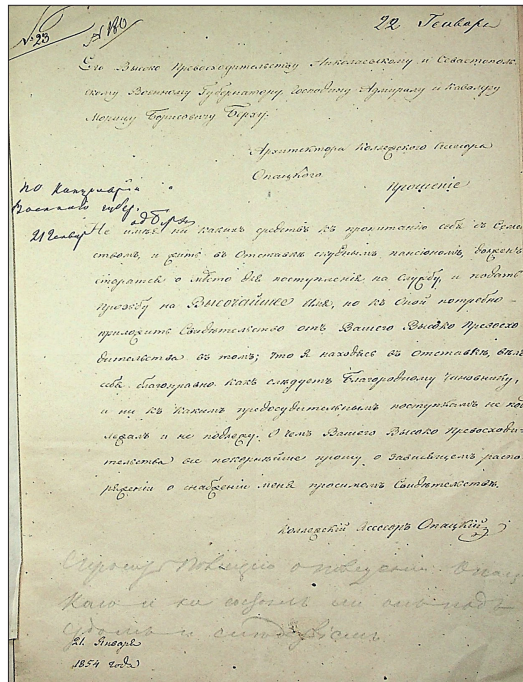 № 23
№ 180
22 Генваря
Его Высоко Превосходительству Николаевскому и Севастополь-
скому Военному Губернатору, Господину Адмиралу и Кавалеру
Морицу Борисовичу Берху.
Архитектора Коллежского Ассесора
Опацкого
Прошение
по Канцелярии
Военного губер.
21 Генвар
Не имея ни каких средств к пропитанию себя с Семей
ством, и жить в Отставке скудным пансионом, должен
старатся о место для поступления на Службу, и подать
прозьбу на Высочайшее Имя, но к Оной потребно
приложить Свидетельство от Вашего Высоко Превосхо-
дительства в том; что я находясь в отставке, вел
себя благонравно как следует Благородному чиновнику,
и ни к каким предосудительным поступкам не
и не подвержен. О чем Вашего Высоко Превосходи-
тельства все покорнейше прошу о зависящем распо
ряжении о снабжении меня просимым Свидетельством.
Коллежский Ассесор Опацкий
Прошу Полицию о поведении Опац
каго и не состоит ли он под
судом и следствием
21 Января
1854 года